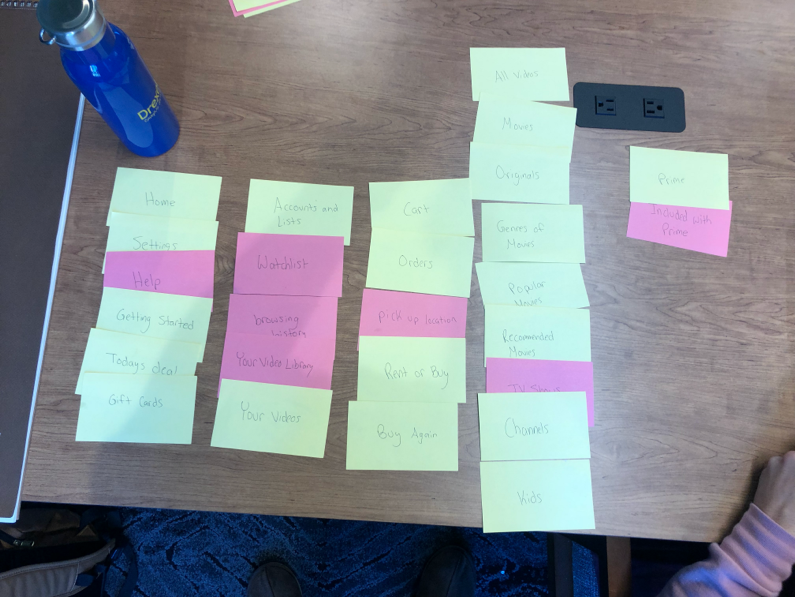 Home
Settings
Help
Getting Started
Todays deal
Gift Cards
Accounts and
Lists
Watchlist
browsing
history
Your Video Library
Your Videos
Cart
Orders
Pick up location
Rent or Buy
Buy Again
All Videos
Moves
Originals
Genres of
Moves
Popular
Moves
Recommended
Moves
TV Shows
Channels
Kids
Prime
Included with
Prime